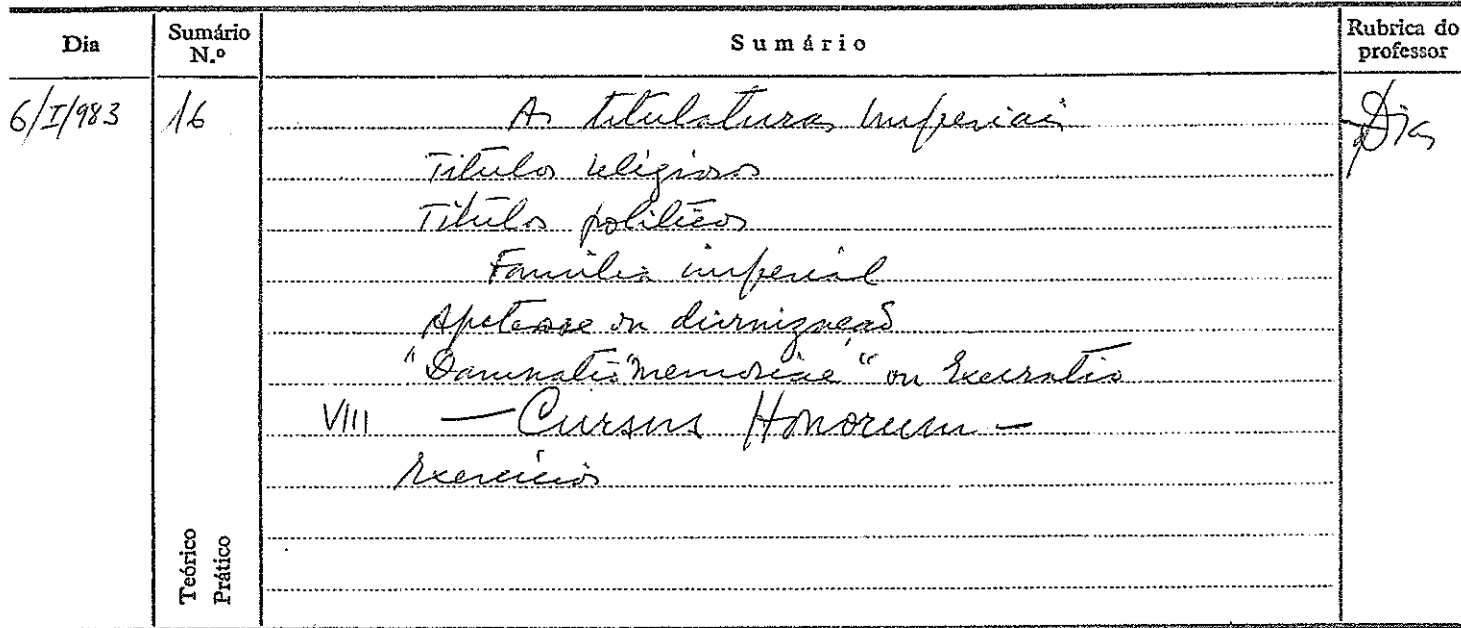 Dia Sumário N.º Sumário Rubrica do professor
6/I/983 16 As titulaturas imperiais Dias
Titulos religiosos
Titulos politicos
Familia imperial
Apoteose ou divinização
"Damnatio memoriae" ou Execratio
VIII — Cursus Honorum —
Exercicios
Teórico
Prático